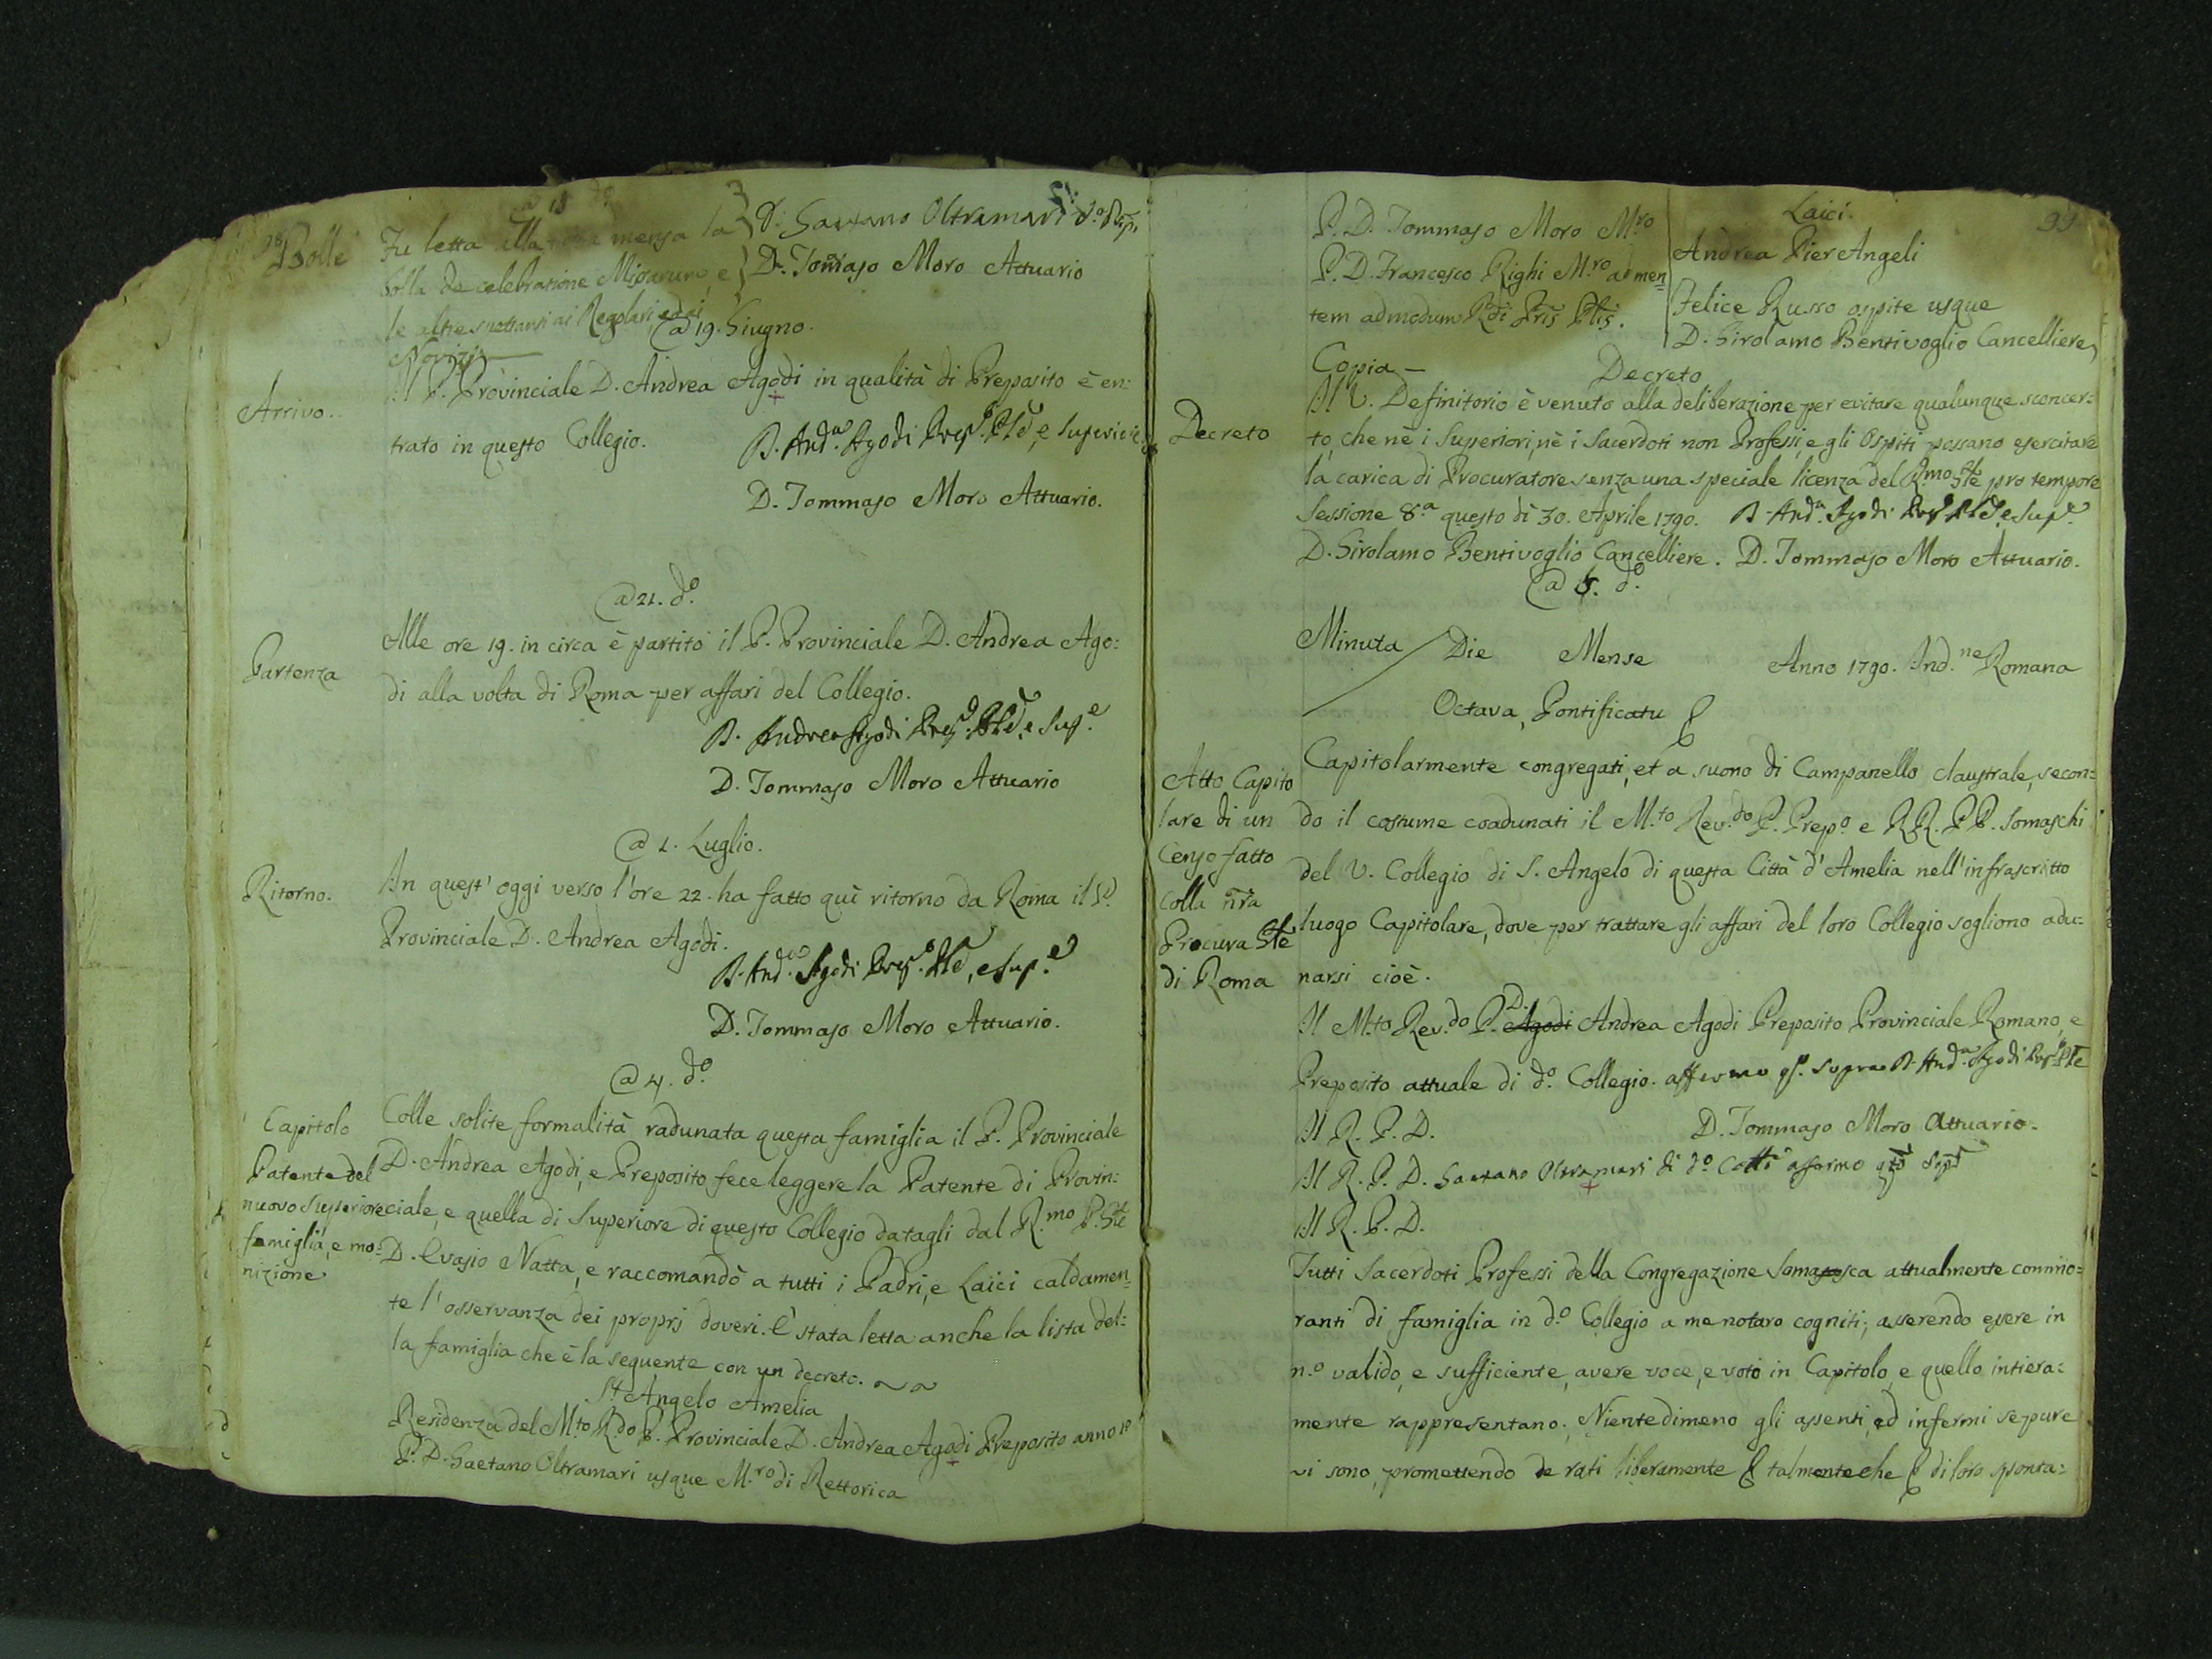 @ 18 do
Bolle
Fu letta alla mensa la } D. Gaetano Oltramari
bolla de celebratione Missarum, e } D. Tommaso Moro Attuario
le altre spettanti ai Regolari, ed ai
Novizj
@ 19. Giugno.
Arrivo.
Il P. Provinciale D. Andrea Agodi in qualità di Preposito è en:
trato in questo Collegio.
D. And.a Agodi Prep.o Ple, e Superiore
D. Tommaso Moro Attuario.
@ 21. do.
Partenza
Alle ore 19. in circa è partito il P. Provinciale D. Andrea Ago:
di alla volta di Roma per affari del Collegio.
D. Andrea Agodi Prep.o Ple, e Sup.e
D. Tommaso Moro Attuario
@ 1. Luglio.
Ritorno.
In quest'oggi verso l'ore 22. ha fatto quì ritorno da Roma il P.
Provinciale D. Andrea Agodi.
D. And.a Agodi Prep.o Ple, e Sup.e
D. Tommaso Moro Attuario.
@ 4. do.
Capitolo
Patente del
nuovo Superiore
famiglia, e mo:
nizione
Colle solite formalità radunata questa famiglia il P. Provinciale
D. Andrea Agodi, e Preposito fece leggere la Patente di Provin:
ciale, e quella di Superiore di questo Collegio datagli dal R.mo P. Gle
D. Evasio Natta, e raccomandò a tutti i Padri, e Laici caldamen:
te l'osservanza dei proprj doveri. È stata letta anche la lista del:
la famiglia che è la seguente con un decreto.
St Angelo Amelia
Residenza del M.to R.do P. Provinciale D. Andrea Agodi Preposito anno 1o
P. D. Gaetano Oltramari usque M.ro di Rettorica
99
P. D. Tommaso Moro M.ro
P. D. Francesco Righi M.ro ad men:
tem admodum Rdi Pris Plis.
Laici.
Andrea PierAngeli
Felice Russo ospite usque
D. Girolamo Bentivoglio Cancelliere
Copia – Decreto
Decreto
Il V. Definitorio è venuto alla deliberazione per evitare qualunque sconcer:
to, che nè i Superiori, nè i Sacerdoti non Professi, e gli Ospiti possano esercitare
la carica di Procuratore senza una speciale licenza del R.mo Gle pro tempore
Sessione 8.a questo dì 30. Aprile 1790. D. And.a Agodi Prep. Ple, e Sup.e
D. Girolamo Bentivoglio Cancelliere. D. Tommaso Moro Attuario.
@ 5. do.
Minuta / Die Mense Anno 1790. Ind.ne Romana
Octava, Pontificatu
Atto Capito
lare di un
Censo fatto
colla nra
Procura Gle
di Roma
Capitolarmente congregati, et a suono di Campanello claustrale, secon:
do il costume coadunati il M.to Rev.do P. Prep.o e RR. PP. Somaschi
del V. Collegio di S. Angelo di questa Città d'Amelia nell'infrascritto
luogo Capitolare, dove per trattare gli affari del loro Collegio sogliono adu:
narsi cioè.
Il M.to Rev.do P. D. Agodi Andrea Agodi Preposito Provinciale Romano, e
Preposito attuale di do. Collegio. affermo qo. supra D. And.a Agodi Prep.o Ple
Il R. P. D. D. Tommaso Moro Attuario.
Il R. P. D. Gaetano Oltramari di do Coll affermo
Il R. P. D.
Tutti Sacerdoti Professi della Congregazione Somasca attualmente commo:
ranti di famiglia in do. Collegio a me notaro cogniti; asserendo essere in
n.o valido, e sufficiente, avere voce, e voto in Capitolo, e quello intiera:
mente rappresentano. Nientedimeno gli assenti, ed infermi se pure
vi sono, promettendo de rati liberamente talmente che di loro sponta: